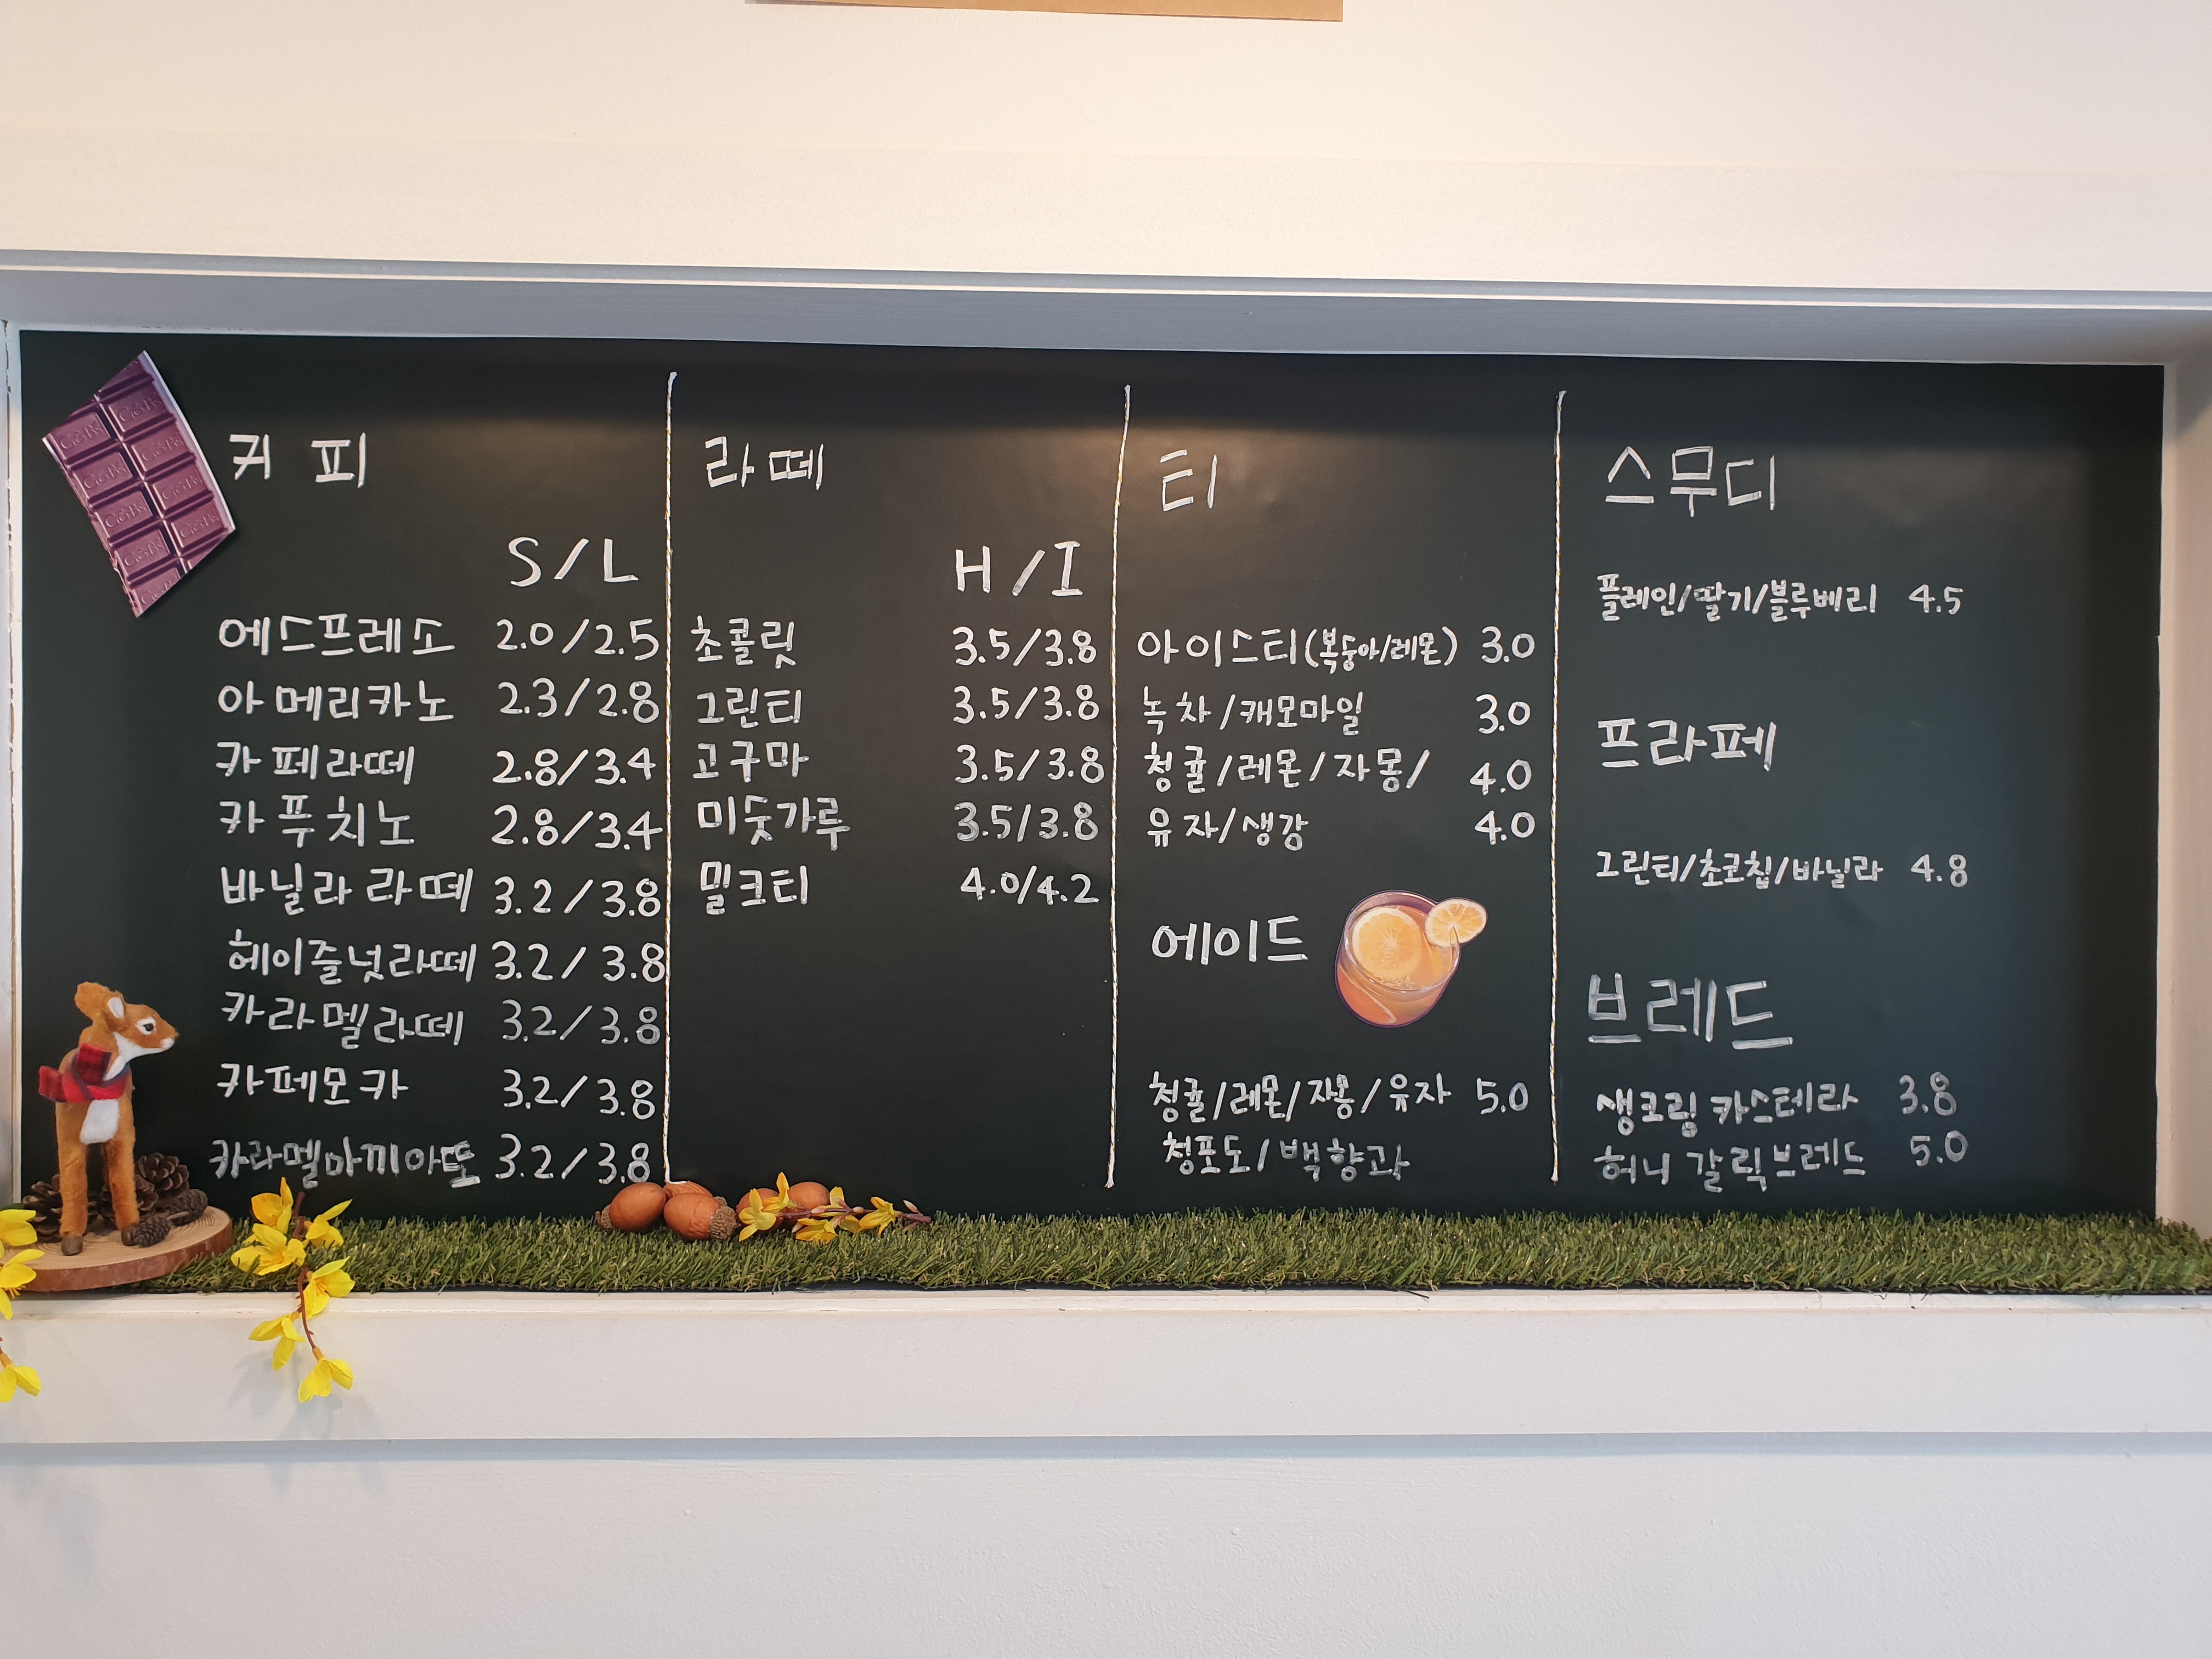 커피
S/L
에스프레소 2.0/2.5
아메리카노 2.3/2.8
카페라떼 2.8/3.4
카푸치노 2.8/3.4
바닐라 라떼 3.2/3.8
헤이즐넛라떼 3.2/3.8
카라멜라떼 3.2/3.8
카페모카 3.2/3.8
카라멜마끼아또 3.2/3.8
라떼
H/I
초콜릿 3.5/3.8
그린티 3.5/3.8
고구마 3.5/3.8
미숫가루 3.5/3.8
밀크티 4.0/4.2
티
아이스티(복숭아/레몬) 3.0
녹차/캐모마일 3.0
청귤/레몬/자몽/ 4.0
유자/생강 4.0
에이드
청귤/레몬/자몽/유자 5.0
청포도/백향과
스무디
플레인/딸기/블루베리 4.5
프라페
그린티/초코칩/바닐라 4.8
브레드
생크림 카스테라 3.8
허니 갈릭브레드 5.0